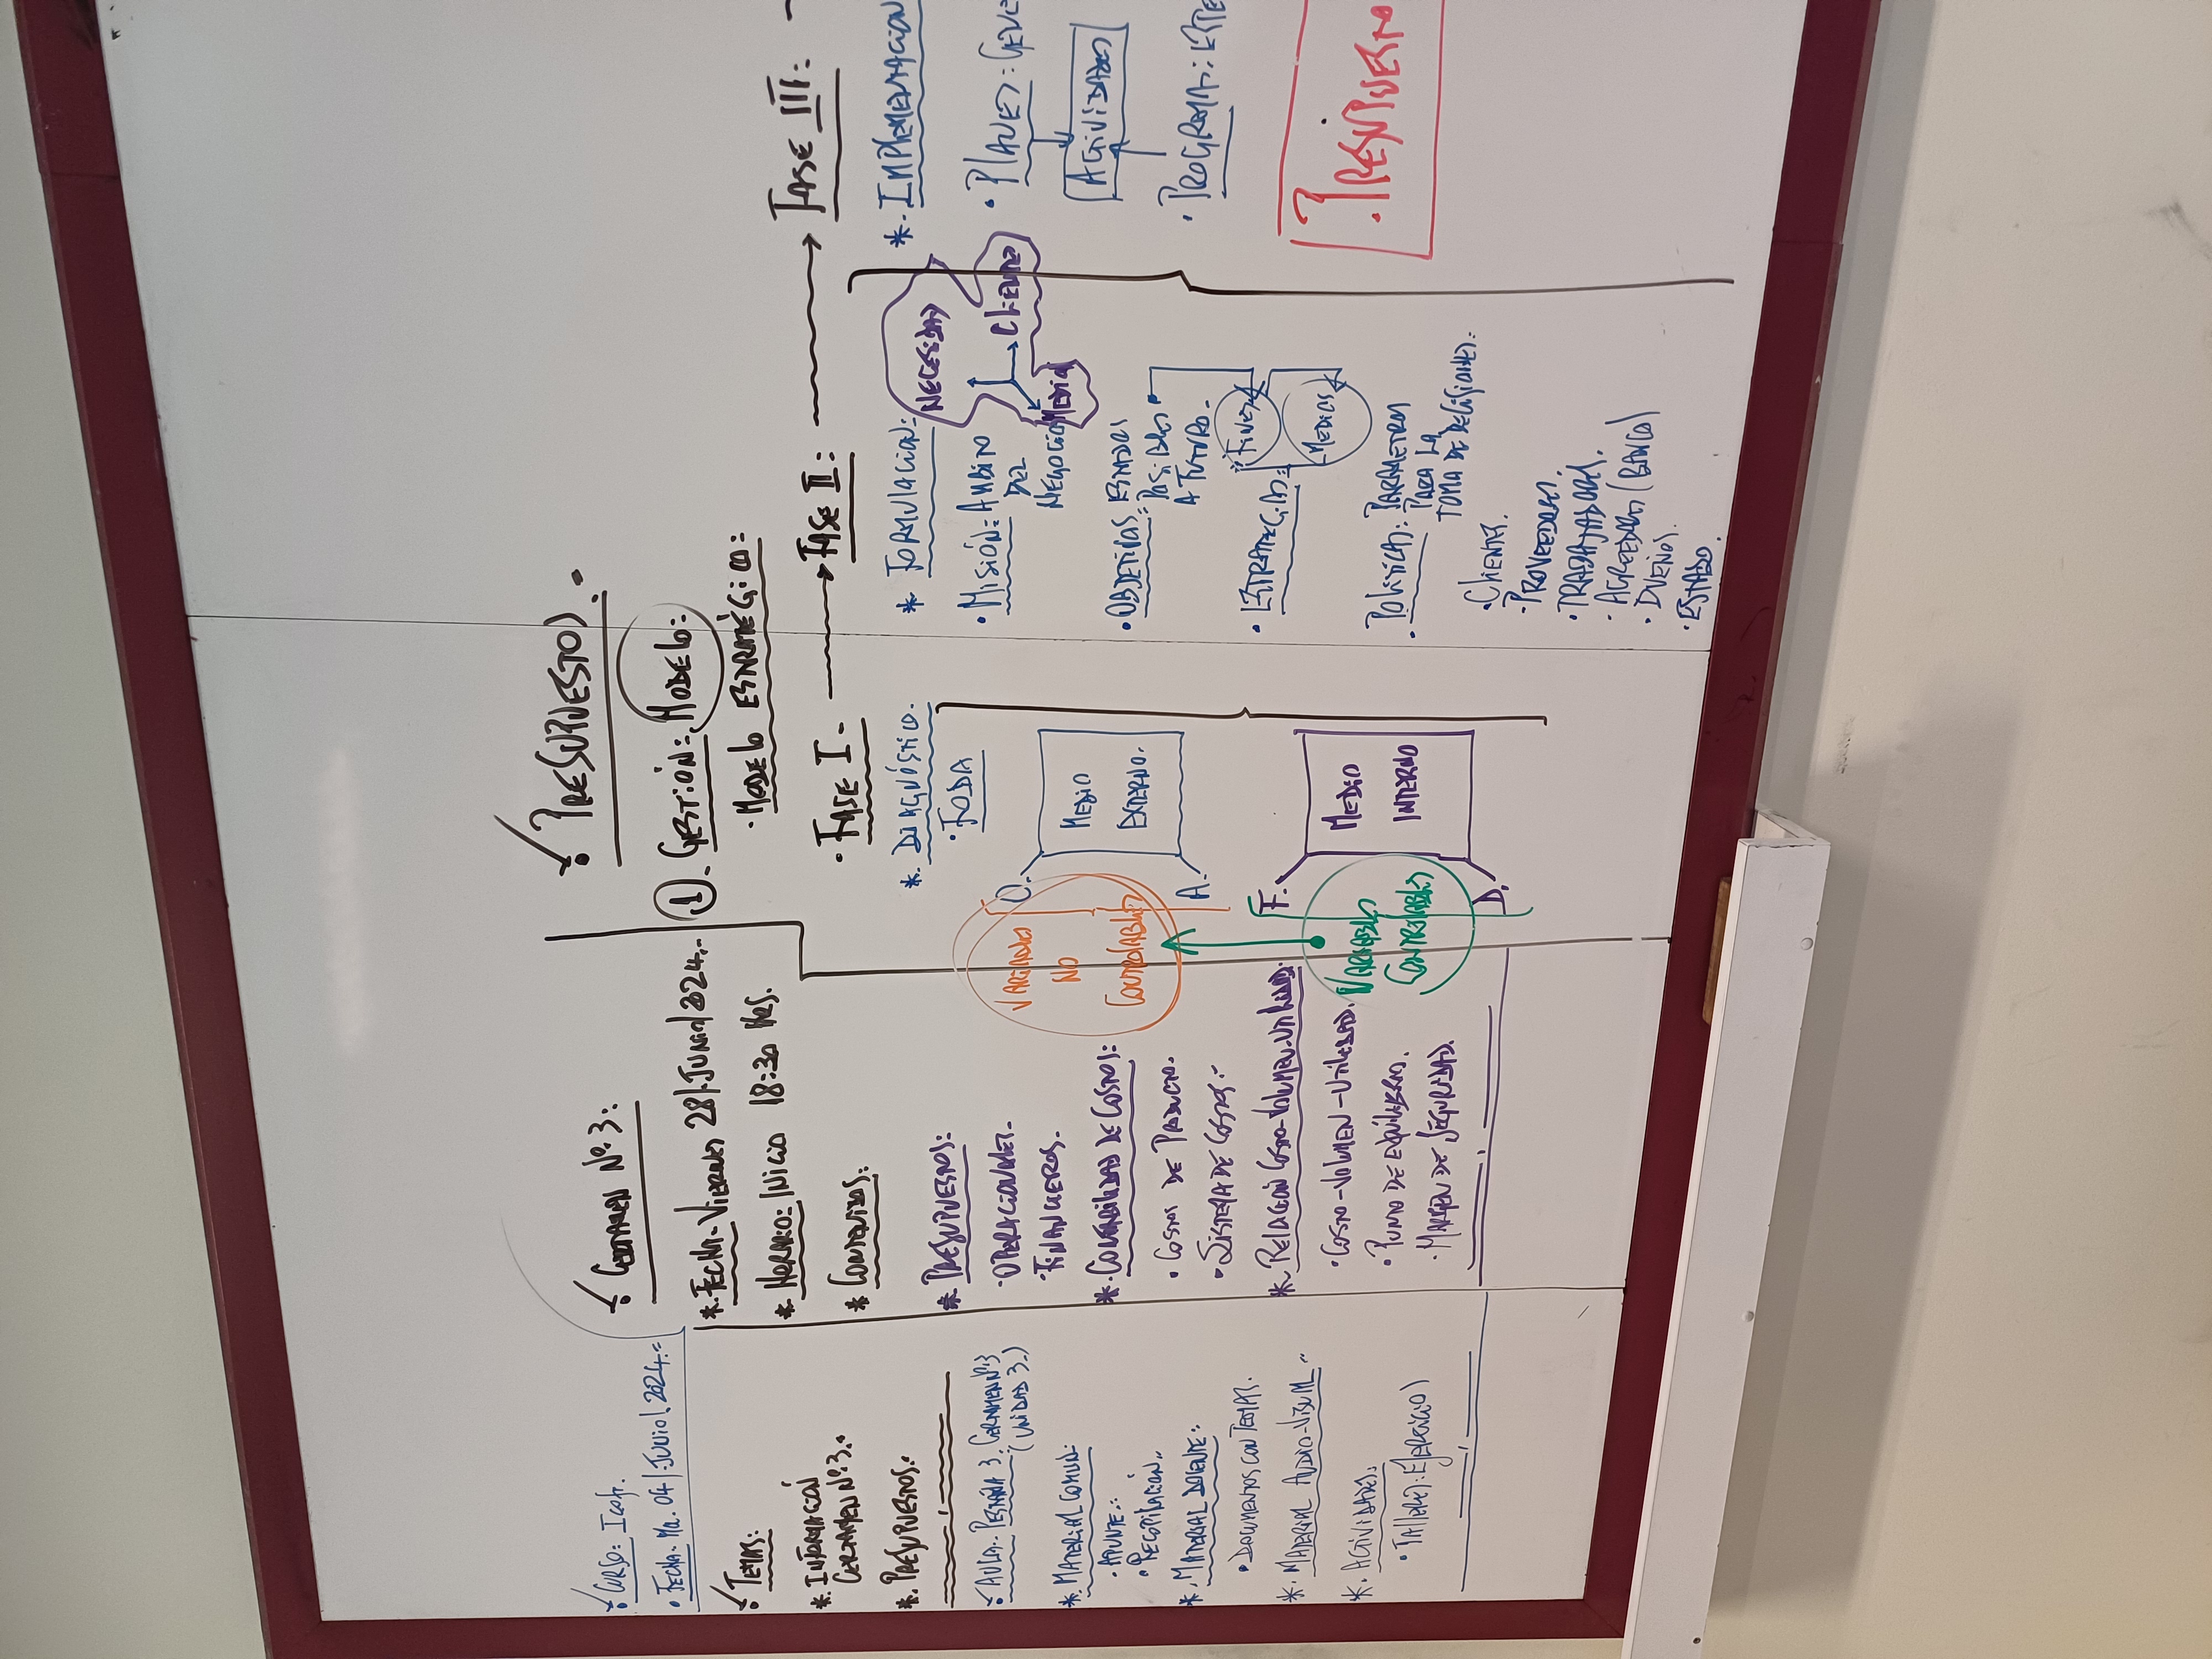 • CURSO: Icofr.
• FECHA. Ma. 04/JUNIO/.2024.=
• TEMAS:
*. INFORMACIÓN
CERTAMEN Nº.3.-
*. PRESUPUESTOS.-
• AULA.. PESTAÑA 3. CERTAMEN Nº.3
(UNIDAD 3.)
*. MATERIAL COMUN:
• APUNTE.:
• RECOPILACIÓN..
*. MATERIAL DOCENTE:
• DOCUMENTOS CON TEMAS.
*. MATERIAL AUDIO-VISUAL.-
*. ACTIVIDADES.
• TALLERES: EJERCICIOS
• CERTAMEN Nº.3:
*. FECHA.- VIERNES 28/.JUNIO/2024.-
*. HORARIO: INICIO 18:30 HRS.
* CONTENIDOS:
*. PRESUPUESTOS:
• OPERACIONALES.-
• FINANCIEROS.
*. CONTABILIDAD DE COSTOS:
• COSTOS DE PRODUCTO.
• SISTEMA DE COSTOS.-
*. RELACIÓN COSTO-VOLUMEN-UTILIDAD:
• COSTO-VOLUMEN-UTILIDAD.
• PUNTO DE EQUILIBRIO.
• MARGEN DE SEGURIDAD.
• PRESUPUESTOS.
1. GESTIÓN: MODELO:
• MODELO ESTRATÉGICO:
• FASE I.-
*. DIAGNÓSTICO.
• FODA
VARIABLES
NO
CONTROLABLES
O.
MEDIO
EXTERNO.
A.
F.
VARIABLES
CONTROLABLES
MEDIO
INTERNO
D.
FASE II:
* FORMULACION:
• MISIÓN: AMBITO
DEL
NEGOCIO
NECESIDAD
CLIENTES
MEDIOS
• OBJETIVOS: ESTADOS
POSIBLES
A FUTURO.
• ESTRATEGIAS:
FINES
MEDIOS
• POLITICAS: PARAMETROS
PARA LA
TOMA DE DECISIONES:
• CLIENTES.
• PROVEEDORES.
• TRABAJADORES.
• ACREEDORES (BANCO)
• DUEÑOS.
• ESTADO.
FASE III:
*. IMPLEMENTACION
• PLANES: GENE
ACTIVIDADES
• PROGRAMAS: ESPE
• PRESUPUESTO